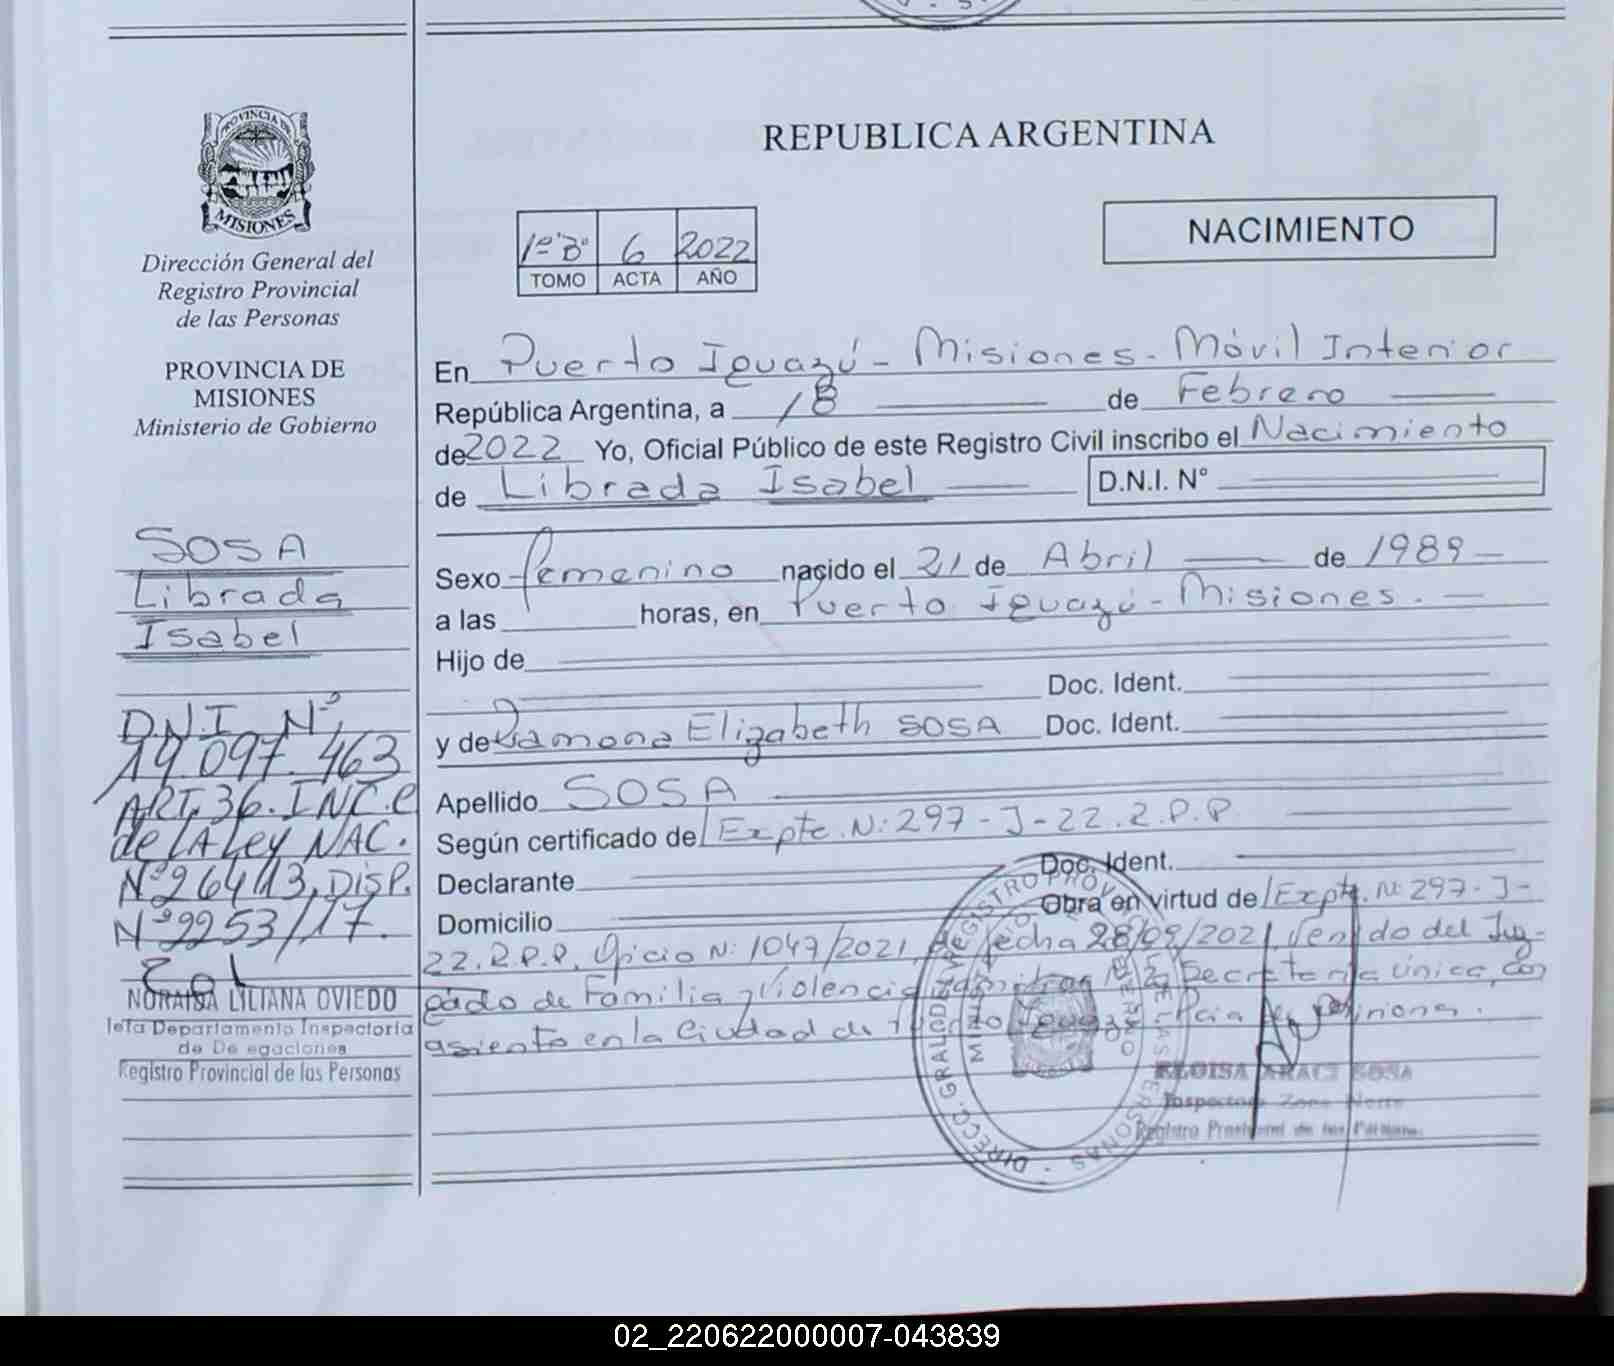 PROVINCIA DE
MISIONES
Dirección General del
Registro Provincial
de las Personas
PROVINCIA DE
MISIONES
Ministerio de Gobierno
SOSA
Librada
Isabel
D.N.I Nº
19.097.463
ART. 36. INC. C
de LA Ley NAC.
Nº 26413, DISP.
Nº 2253/17.
NORAISA LILIANA OVIEDO
Jefa Departamento Inspectoria
de De egaciones
Registro Provincial de las Personas
REPUBLICA ARGENTINA
1º "B" 6 2022
TOMO ACTA AÑO
NACIMIENTO
En Puerto Iguazú - Misiones - Móvil Interior
República Argentina, a 18 de Febrero
de 2022 Yo, Oficial Público de este Registro Civil inscribo el Nacimiento
de Librada Isabel D.N.I. N°
Sexo femenino nacido el 21 de Abril de 1989
a las horas, en Puerto Iguazú - Misiones.
Hijo de
Doc. Ident.
y de Ramona Elizabeth SOSA Doc. Ident.
Apellido SOSA
Según certificado de Expte. N: 297 - J - 22. R.P.P
Declarante Doc. Ident.
Domicilio Obra en virtud de Expte. N: 297 - J -
22. R.P.P, Oficio N: 1047/2021, de fecha 28/09/2021, Venido del Juz-
gado de Familia y Violencia Secretaria única, con
asiento en la Ciudad de Puerto Iguazú Pcia de Misiones.
DIRECC. GRAL DE REGISTRO PROV. DE LAS PERSONAS
ELOISA ARACI SOSA
Inspectora Zona Norte
Registro Provincial de las Personas
02_220622000007-043839